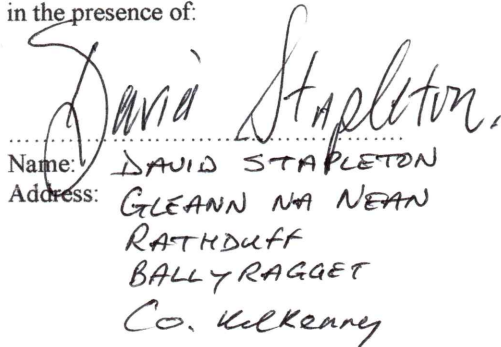 in the presence of:
David Stapleton.
Name: DAVID STAPLETON
Address: GLEANN NA NEAN
RATHDUFF
BALLYRAGGET
Co. Kilkenny